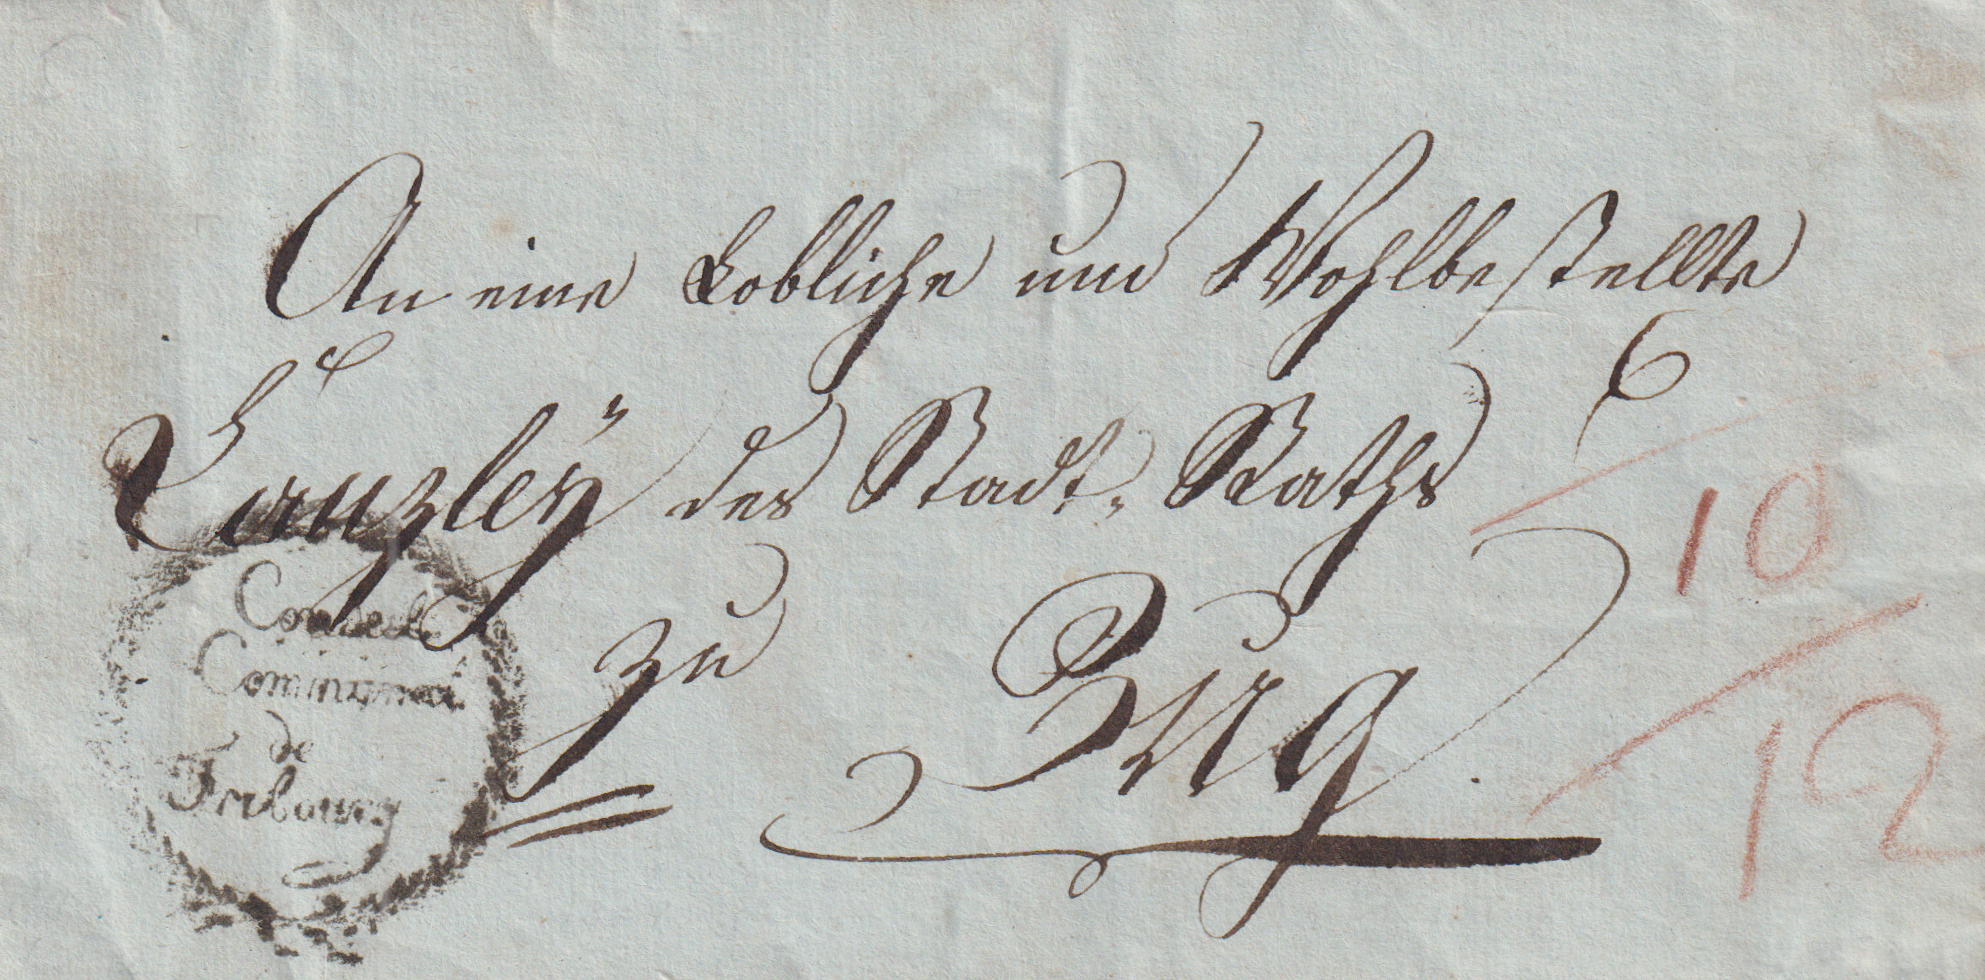 An eine Lobliche und Wohlbestellte
Canzleÿ des Stadt-Raths
zu Zug
6
10
12
Conseil
Communal
de
Fribourg